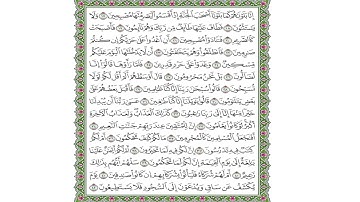 إِنَّا بَلَوْنَٰهُمْ كَمَا بَلَوْنَآ أَصْحَٰبَ ٱلْجَنَّةِ إِذْ أَقْسَمُوا۟ لَيَصْرِمُنَّهَا مُصْبِحِينَ ١٧ وَلَا
يَسْتَثْنُونَ ١٨ فَطَافَ عَلَيْهَا طَآئِفٌ مِّن رَّبِّكَ وَهُمْ نَآئِمُونَ ١٩ فَأَصْبَحَتْ
كَٱلصَّرِيمِ ٢٠ فَتَنَادَوْا۟ مُصْبِحِينَ ٢١ أَنِ ٱغْدُوا۟ عَلَىٰ حَرْثِكُمْ إِن كُنتُمْ
صَٰرِمِينَ ٢٢ فَٱنطَلَقُوا۟ وَهُمْ يَتَخَٰفَتُونَ ٢٣ أَن لَّا يَدْخُلَنَّهَا ٱلْيَوْمَ عَلَيْكُم
مِّسْكِينٌ ٢٤ وَغَدَوْا۟ عَلَىٰ حَرْدٍ قَٰدِرِينَ ٢٥ فَلَمَّا رَأَوْهَا قَالُوٓا۟ إِنَّا
لَضَآلُّونَ ٢٦ بَلْ نَحْنُ مَحْرُومُونَ ٢٧ قَالَ أَوْسَطُهُمْ أَلَمْ أَقُل لَّكُمْ لَوْلَا
تُسَبِّحُونَ ٢٨ قَالُوا۟ سُبْحَٰنَ رَبِّنَآ إِنَّا كُنَّا ظَٰلِمِينَ ٢٩ فَأَقْبَلَ بَعْضُهُمْ عَلَىٰ
بَعْضٍ يَتَلَٰوَمُونَ ٣٠ قَالُوا۟ يَٰوَيْلَنَآ إِنَّا كُنَّا طَٰغِينَ ٣١ عَسَىٰ رَبُّنَآ أَن يُبْدِلَنَا
خَيْرًا مِّنْهَآ إِنَّآ إِلَىٰ رَبِّنَا رَٰغِبُونَ ٣٢ كَذَٰلِكَ ٱلْعَذَابُ وَلَعَذَابُ ٱلْءَاخِرَةِ
أَكْبَرُ لَوْ كَانُوا۟ يَعْلَمُونَ ٣٣ إِنَّ لِلْمُتَّقِينَ عِندَ رَبِّهِمْ جَنَّٰتِ ٱلنَّعِيمِ ٣٤
أَفَنَجْعَلُ ٱلْمُسْلِمِينَ كَٱلْمُجْرِمِينَ ٣٥ مَا لَكُمْ كَيْفَ تَحْكُمُونَ ٣٦ أَمْ لَكُمْ
كِتَٰبٌ فِيهِ تَدْرُسُونَ ٣٧ إِنَّ لَكُمْ فِيهِ لَمَا تَخَيَّرُونَ ٣٨ أَمْ لَكُمْ أَيْمَٰنٌ عَلَيْنَا
بَٰلِغَةٌ إِلَىٰ يَوْمِ ٱلْقِيَٰمَةِ إِنَّ لَكُمْ لَمَا تَحْكُمُونَ ٣٩ سَلْهُمْ أَيُّهُم بِذَٰلِكَ
زَعِيمٌ ٤٠ أَمْ لَهُمْ شُرَكَآءُ فَلْيَأْتُوا۟ بِشُرَكَآئِهِمْ إِن كَانُوا۟ صَٰدِقِينَ ٤١ يَوْمَ
يُكْشَفُ عَن سَاقٍ وَيُدْعَوْنَ إِلَى ٱلسُّجُودِ فَلَا يَسْتَطِيعُونَ ٤٢